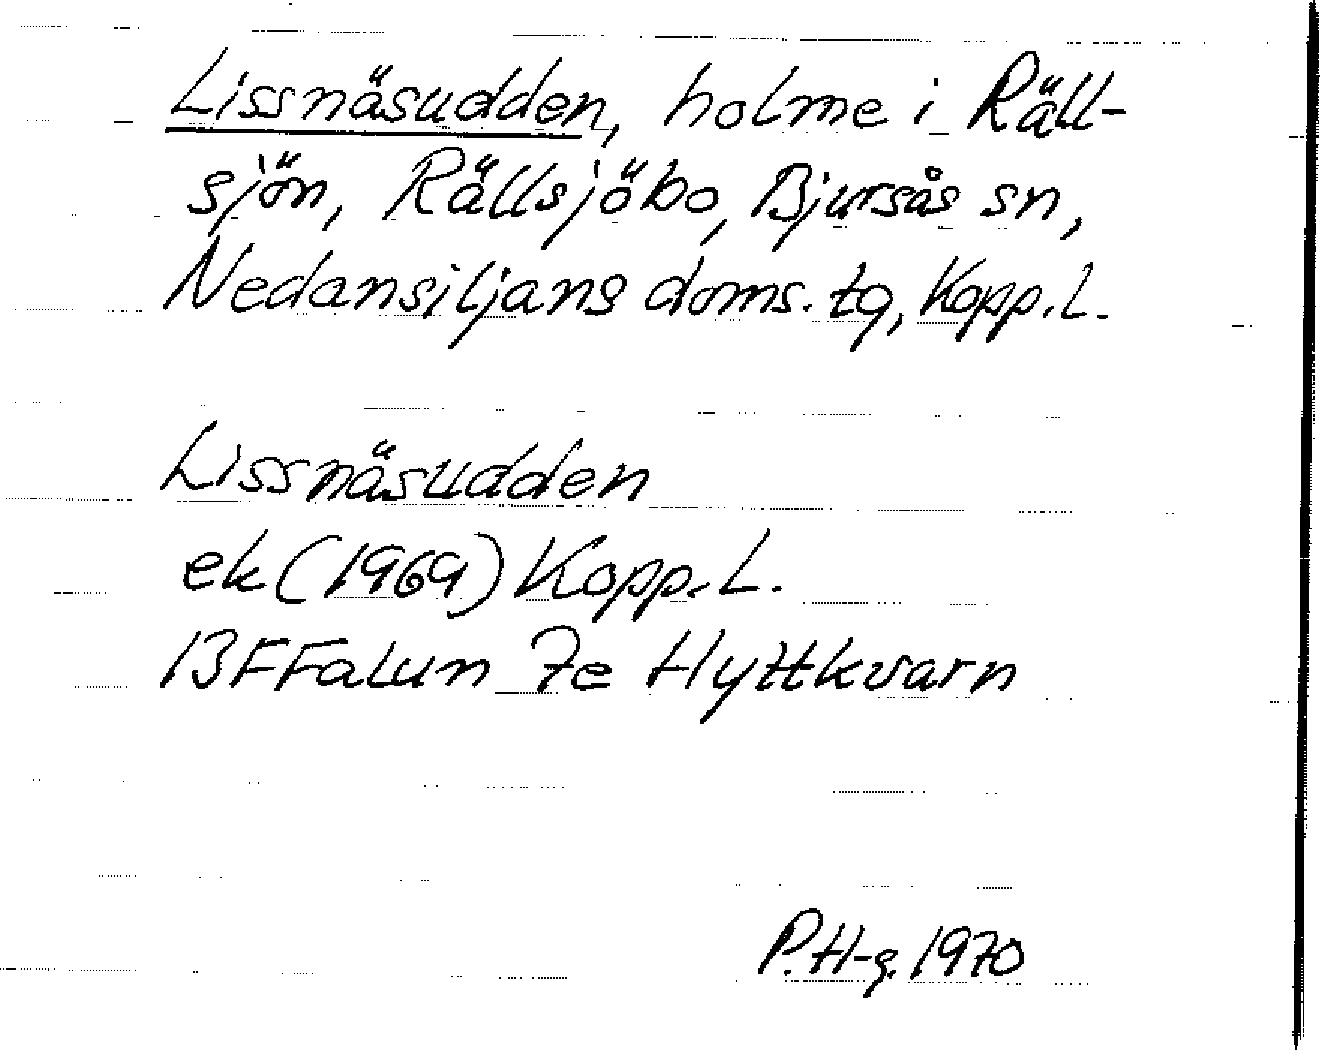 Lissnäsudden, holme i Räll-
sjön, Rällsjöbo, Bjursås sn,
Nedansiljans doms. tg, Kopp. l.
Lissnäsudden
ek (1969) Kopp. L.
13F Falun 7e Hyttkvarn
P. H-g. 1970